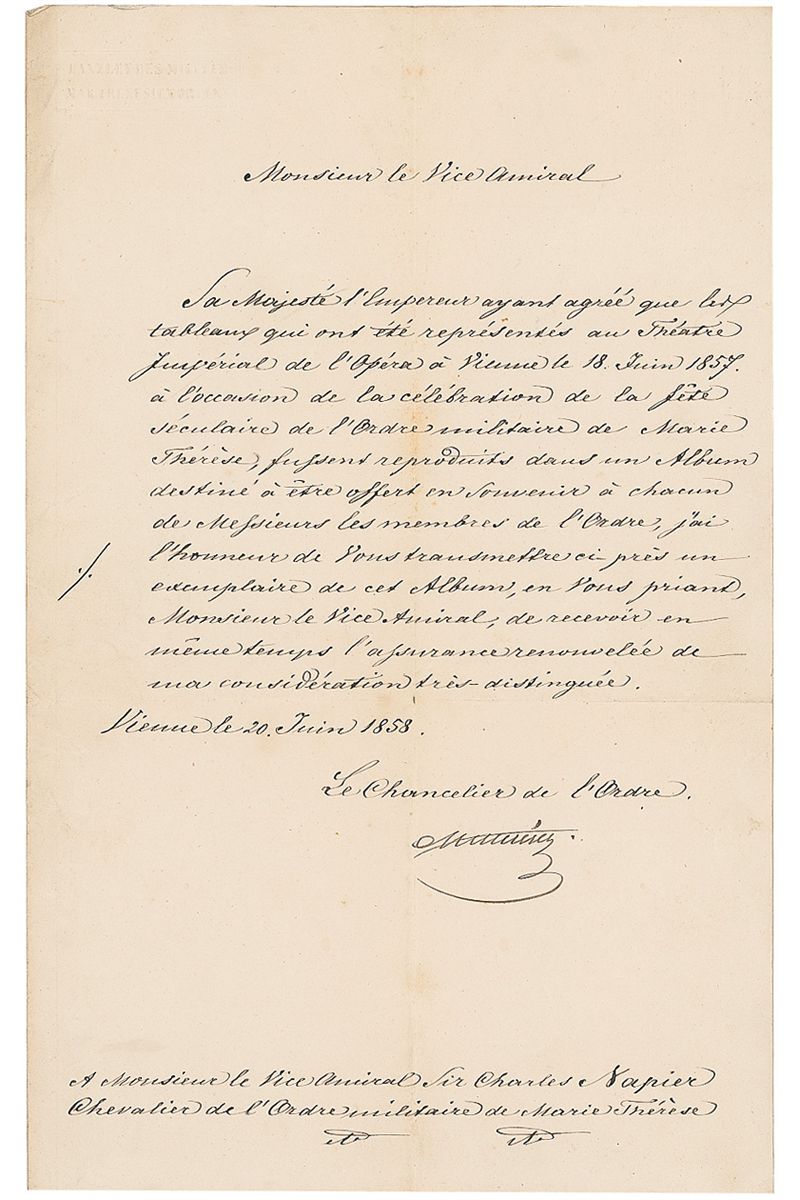 Monsieur le Vice Amiral
Sa Majesté l'Empereur ayant agréé que les
tableaux qui ont été représentés au Théatre
Impérial de l'Opéra à Vienne le 18. Juin 1857.
à l'occasion de la célébration de la fête
séculaire de l'Ordre militaire de Marie
Thérèse, fussent reproduits dans un Album
destiné à être offert en souvenir à chacun
de Messieurs les membres de l'Ordre, j'ai
l'honneur de Vous transmettre ci près un
exemplaire de cet Album, en Vous priant,
Monsieur le Vice Amiral, de recevoir en
même temps l'assurance renouvelée de
ma considération très-distinguée.
Vienne le 20. Juin 1858.
Le Chancelier de l'Ordre.
A Monsieur le Vice Amiral Sir Charles Napier
Chevalier de l'Ordre militaire de Marie Thérèse